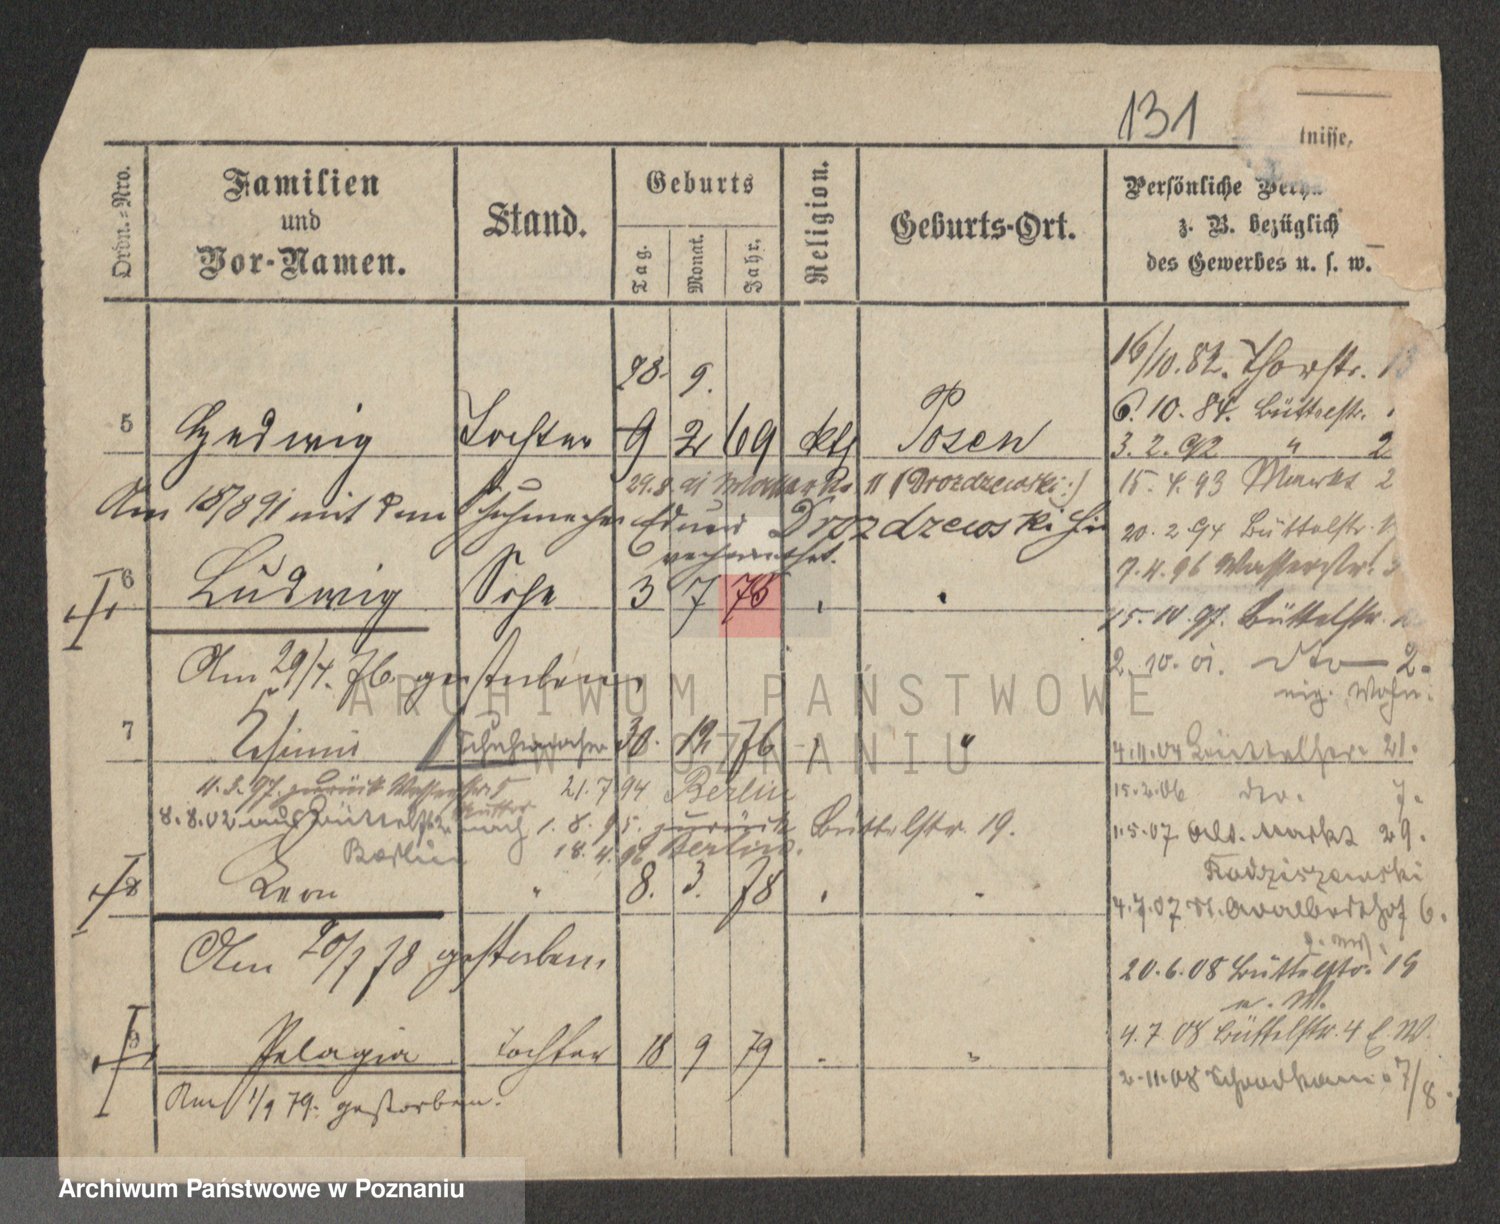 131
tnisse,
Ordn.=Nro.
Familien
und
Vor-Namen.
Stand.
Geburts
Tag.
Monat.
Jahr.
Religion.
Geburts-Ort.
Persönliche Verh
z. B. bezüglich
des Gewerbes u. s. w.
28. 9.
5 Hedwig Tochter 9 2 69 kth Posen
Am 18/8 91 mit dem Schuhmacher Eduard Drozdzewski hier
verheirathet.
29.8. 91 Markt 11 (Drozdzewski:)
6 Ludwig Sohn 3 7 75 " "
Am 29/4. 76 gestorben.
7 Casimir Schuhmacher 30. 12 76 " "
11.3.97 zurück Wasserstr. 5 21.7.94 Berlin
8.8.02 aus Büttelstr. nach 1.8.95. zurück Büttelstr. 19.
Mutter
Berlin 18.4.96 Berlin.
8 Leon " 8. 3. 78 " "
Am 20/7 78 gestorben.
9 Pelagia Tochter 18 9 79 " "
Am 1/9 79. gestorben.
16/10.82. Thorstr. 13
6.10.84. Büttelstr.
3.2.92 " 2
15.4.93 Markt 2
20.2.94 Büttelstr.
7.4.96 Wasserstr.
15.10.97. Büttelstr.
2.10.01. dto 2.
eig. Wohn.
4.11.04 Büttelstr. 21.
15.2.06 dto. 7.
1.5.07 Alt. Markt 29.
Radziszewski
4.7.07 St. Adalberthof 6.
20.6.08 Büttelstr. 19
u. M.
4.7 08 Büttelstr. 4 E.W.
2.11.08 Schrodkamm 7/8.
ARCHIWUM PAŃSTWOWE
W POZNANIU
Archiwum Państwowe w Poznaniu